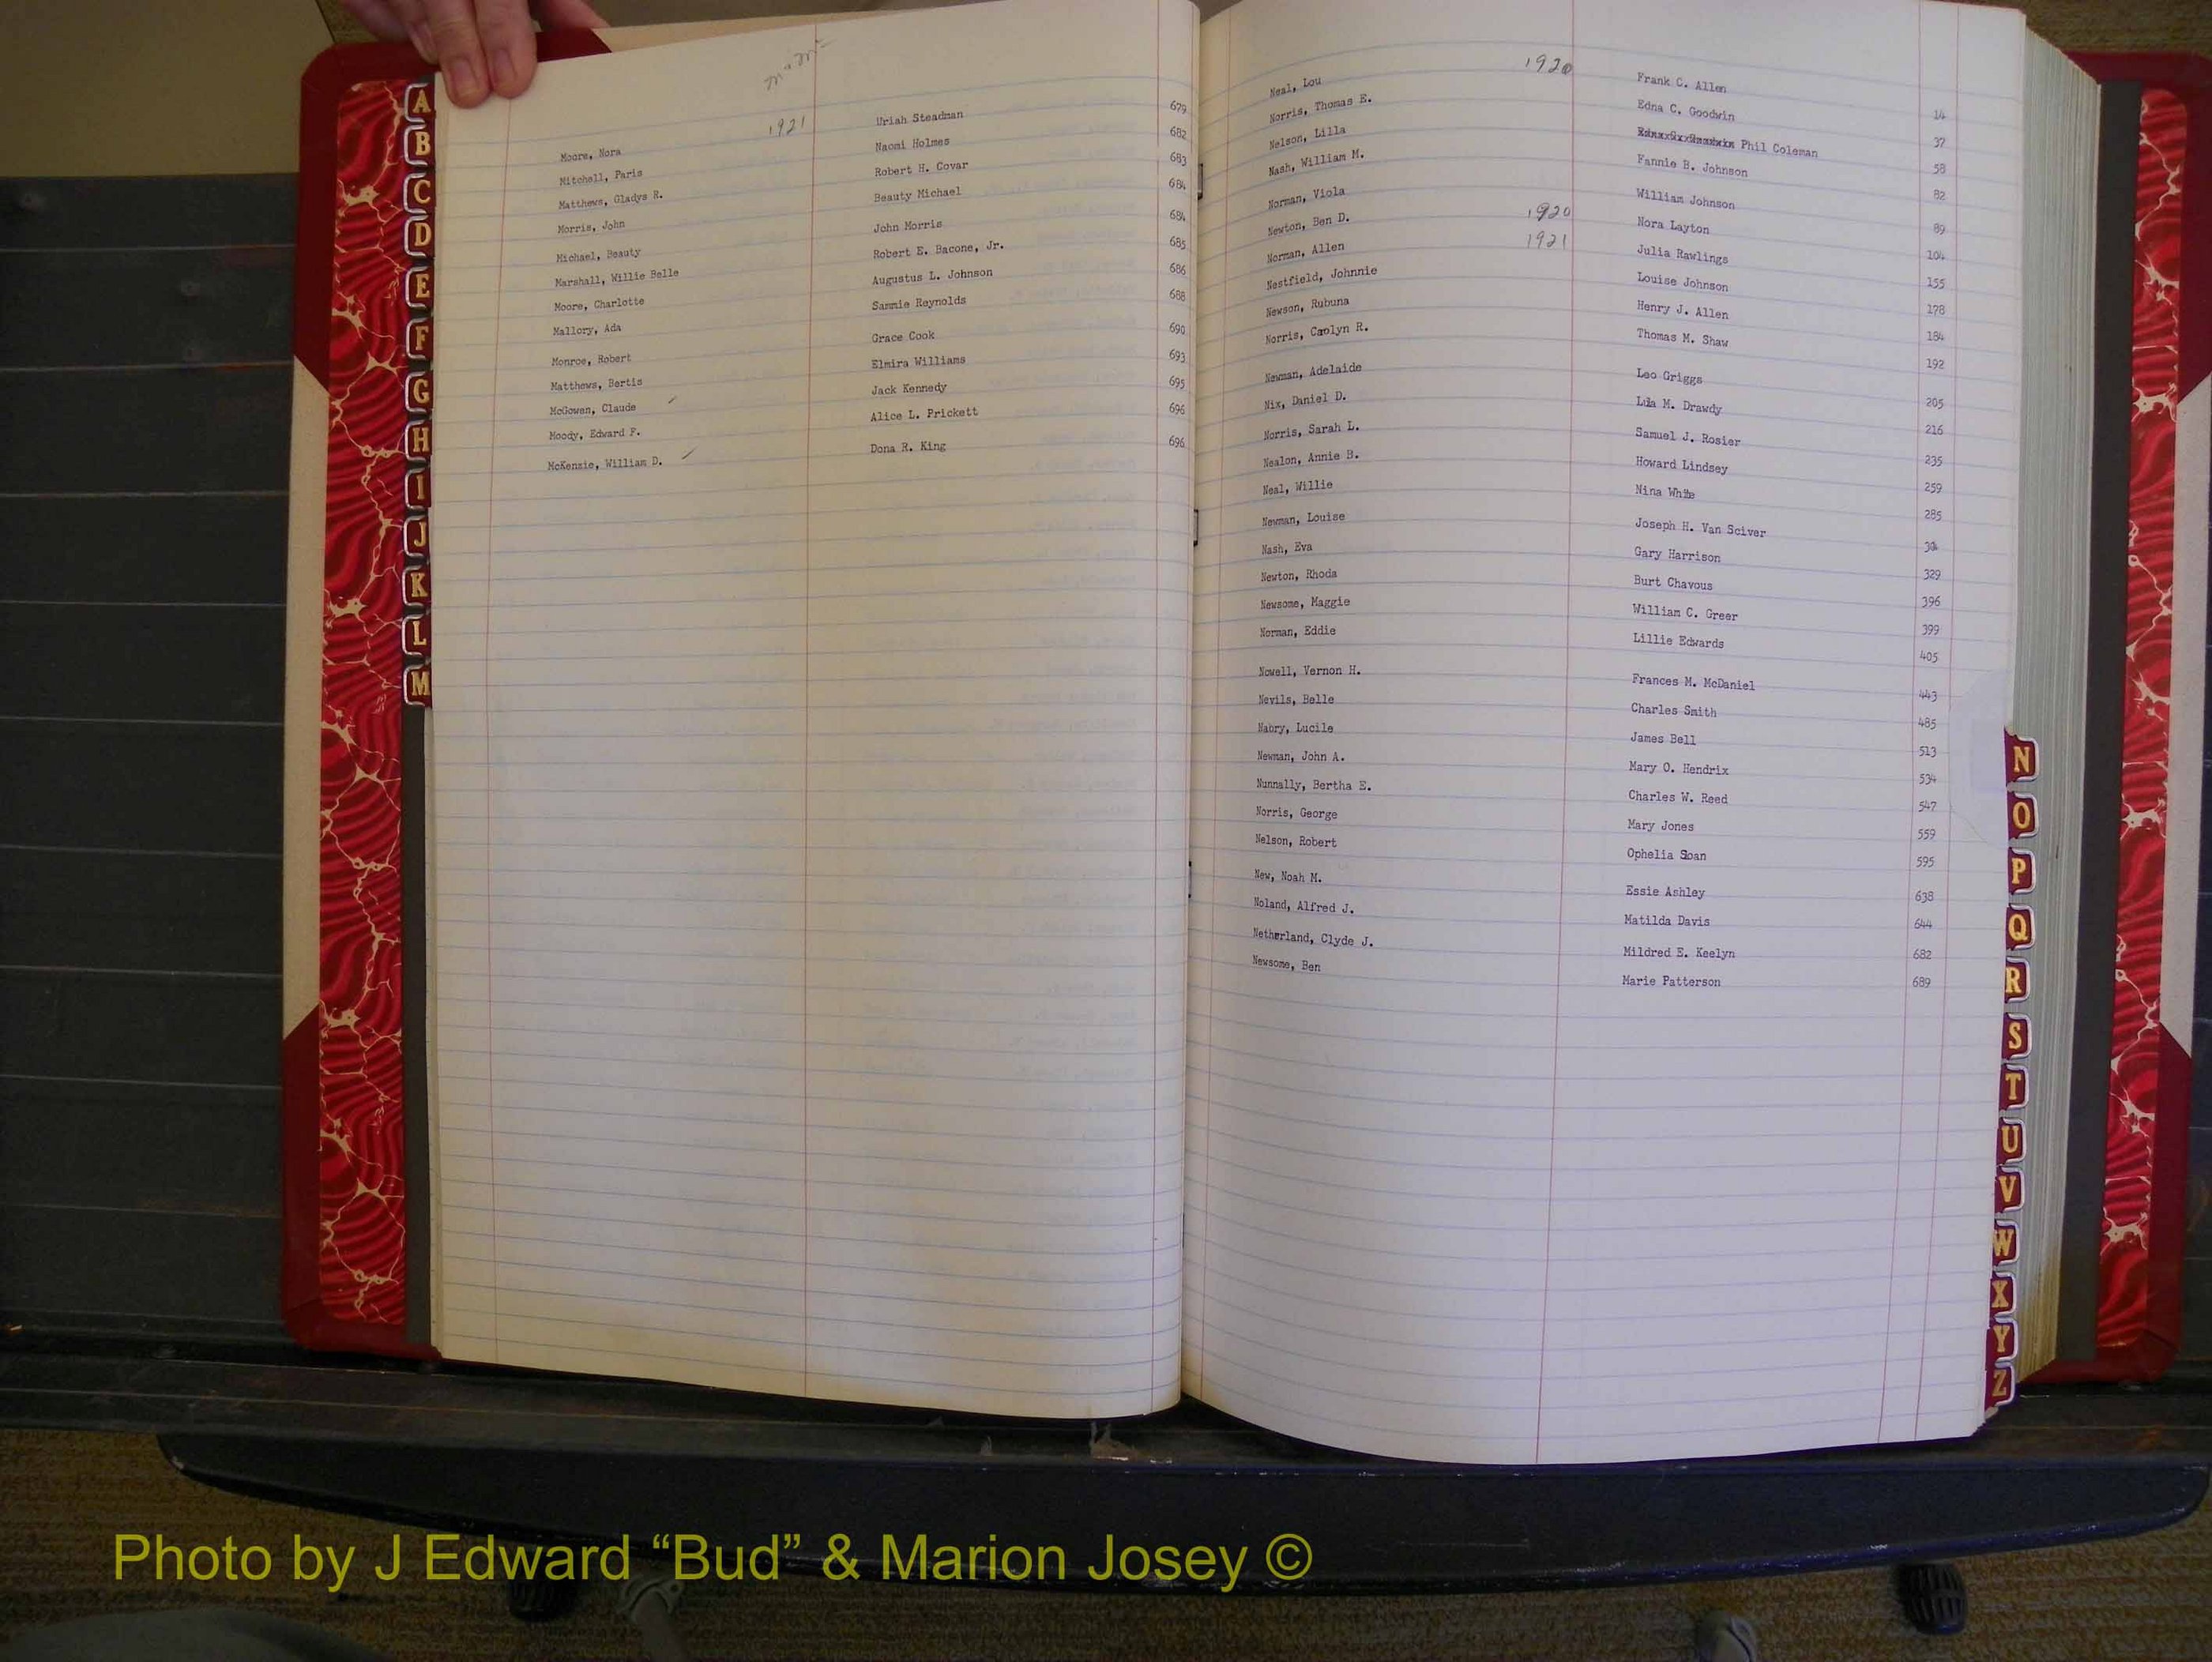 M & Mc
1921
Moore, Nora Uriah Steadman 679
Mitchell, Paris Naomi Holmes 682
Matthews, Gladys R. Robert H. Covar 683
Morris, John Beauty Michael 684
Michael, Beauty John Morris 684
Marshall, Willie Belle Robert E. Bacone, Jr. 685
Moore, Charlotte Augustus L. Johnson 686
Mallory, Ada Sammie Reynolds 688
Monroe, Robert Grace Cook 690
Matthews, Bertis Elmira Williams 693
McGowen, Claude Jack Kennedy 695
Moody, Edward F. Alice L. Prickett 696
McKenzie, William D. Dona R. King 696
Neal, Lou 1920 Frank C. Allen 14
Norris, Thomas E. Edna C. Goodwin 37
Nelson, Lilla Phil Coleman 58
Nash, William M. Fannie B. Johnson 82
Norman, Viola William Johnson 89
Newton, Ben D. 1920 Nora Layton 104
Norman, Allen 1921 Julia Rawlings 155
Nestfield, Johnnie Louise Johnson 178
Newson, Rubuna Henry J. Allen 184
Norris, Carolyn R. Thomas M. Shaw 192
Newman, Adelaide Leo Griggs 205
Nix, Daniel D. Lula M. Drawdy 216
Norris, Sarah L. Samuel J. Rosier 235
Nealon, Annie B. Howard Lindsey 259
Neal, Willie Nina White 285
Newman, Louise Joseph H. Van Sciver
Nash, Eva Gary Harrison 329
Newton, Rhoda Burt Chavous 396
Newsome, Maggie William C. Greer 399
Norman, Eddie Lillie Edwards 405
Nowell, Vernon H. Frances M. McDaniel 443
Nevils, Belle Charles Smith 485
Nabry, Lucile James Bell 513
Newman, John A. Mary O. Hendrix 534
Nunnally, Bertha E. Charles W. Reed 547
Norris, George Mary Jones 559
Nelson, Robert Ophelia Sloan 595
New, Noah M. Essie Ashley 638
Noland, Alfred J. Matilda Davis 644
Netherland, Clyde J. Mildred E. Keelyn 682
Newsome, Ben Marie Patterson 689
A
B
C
D
E
F
G
H
I
J
K
L
M
N
O
P
Q
R
S
T
U
V
W
X
Y
Z
Photo by J Edward “Bud” & Marion Josey ©